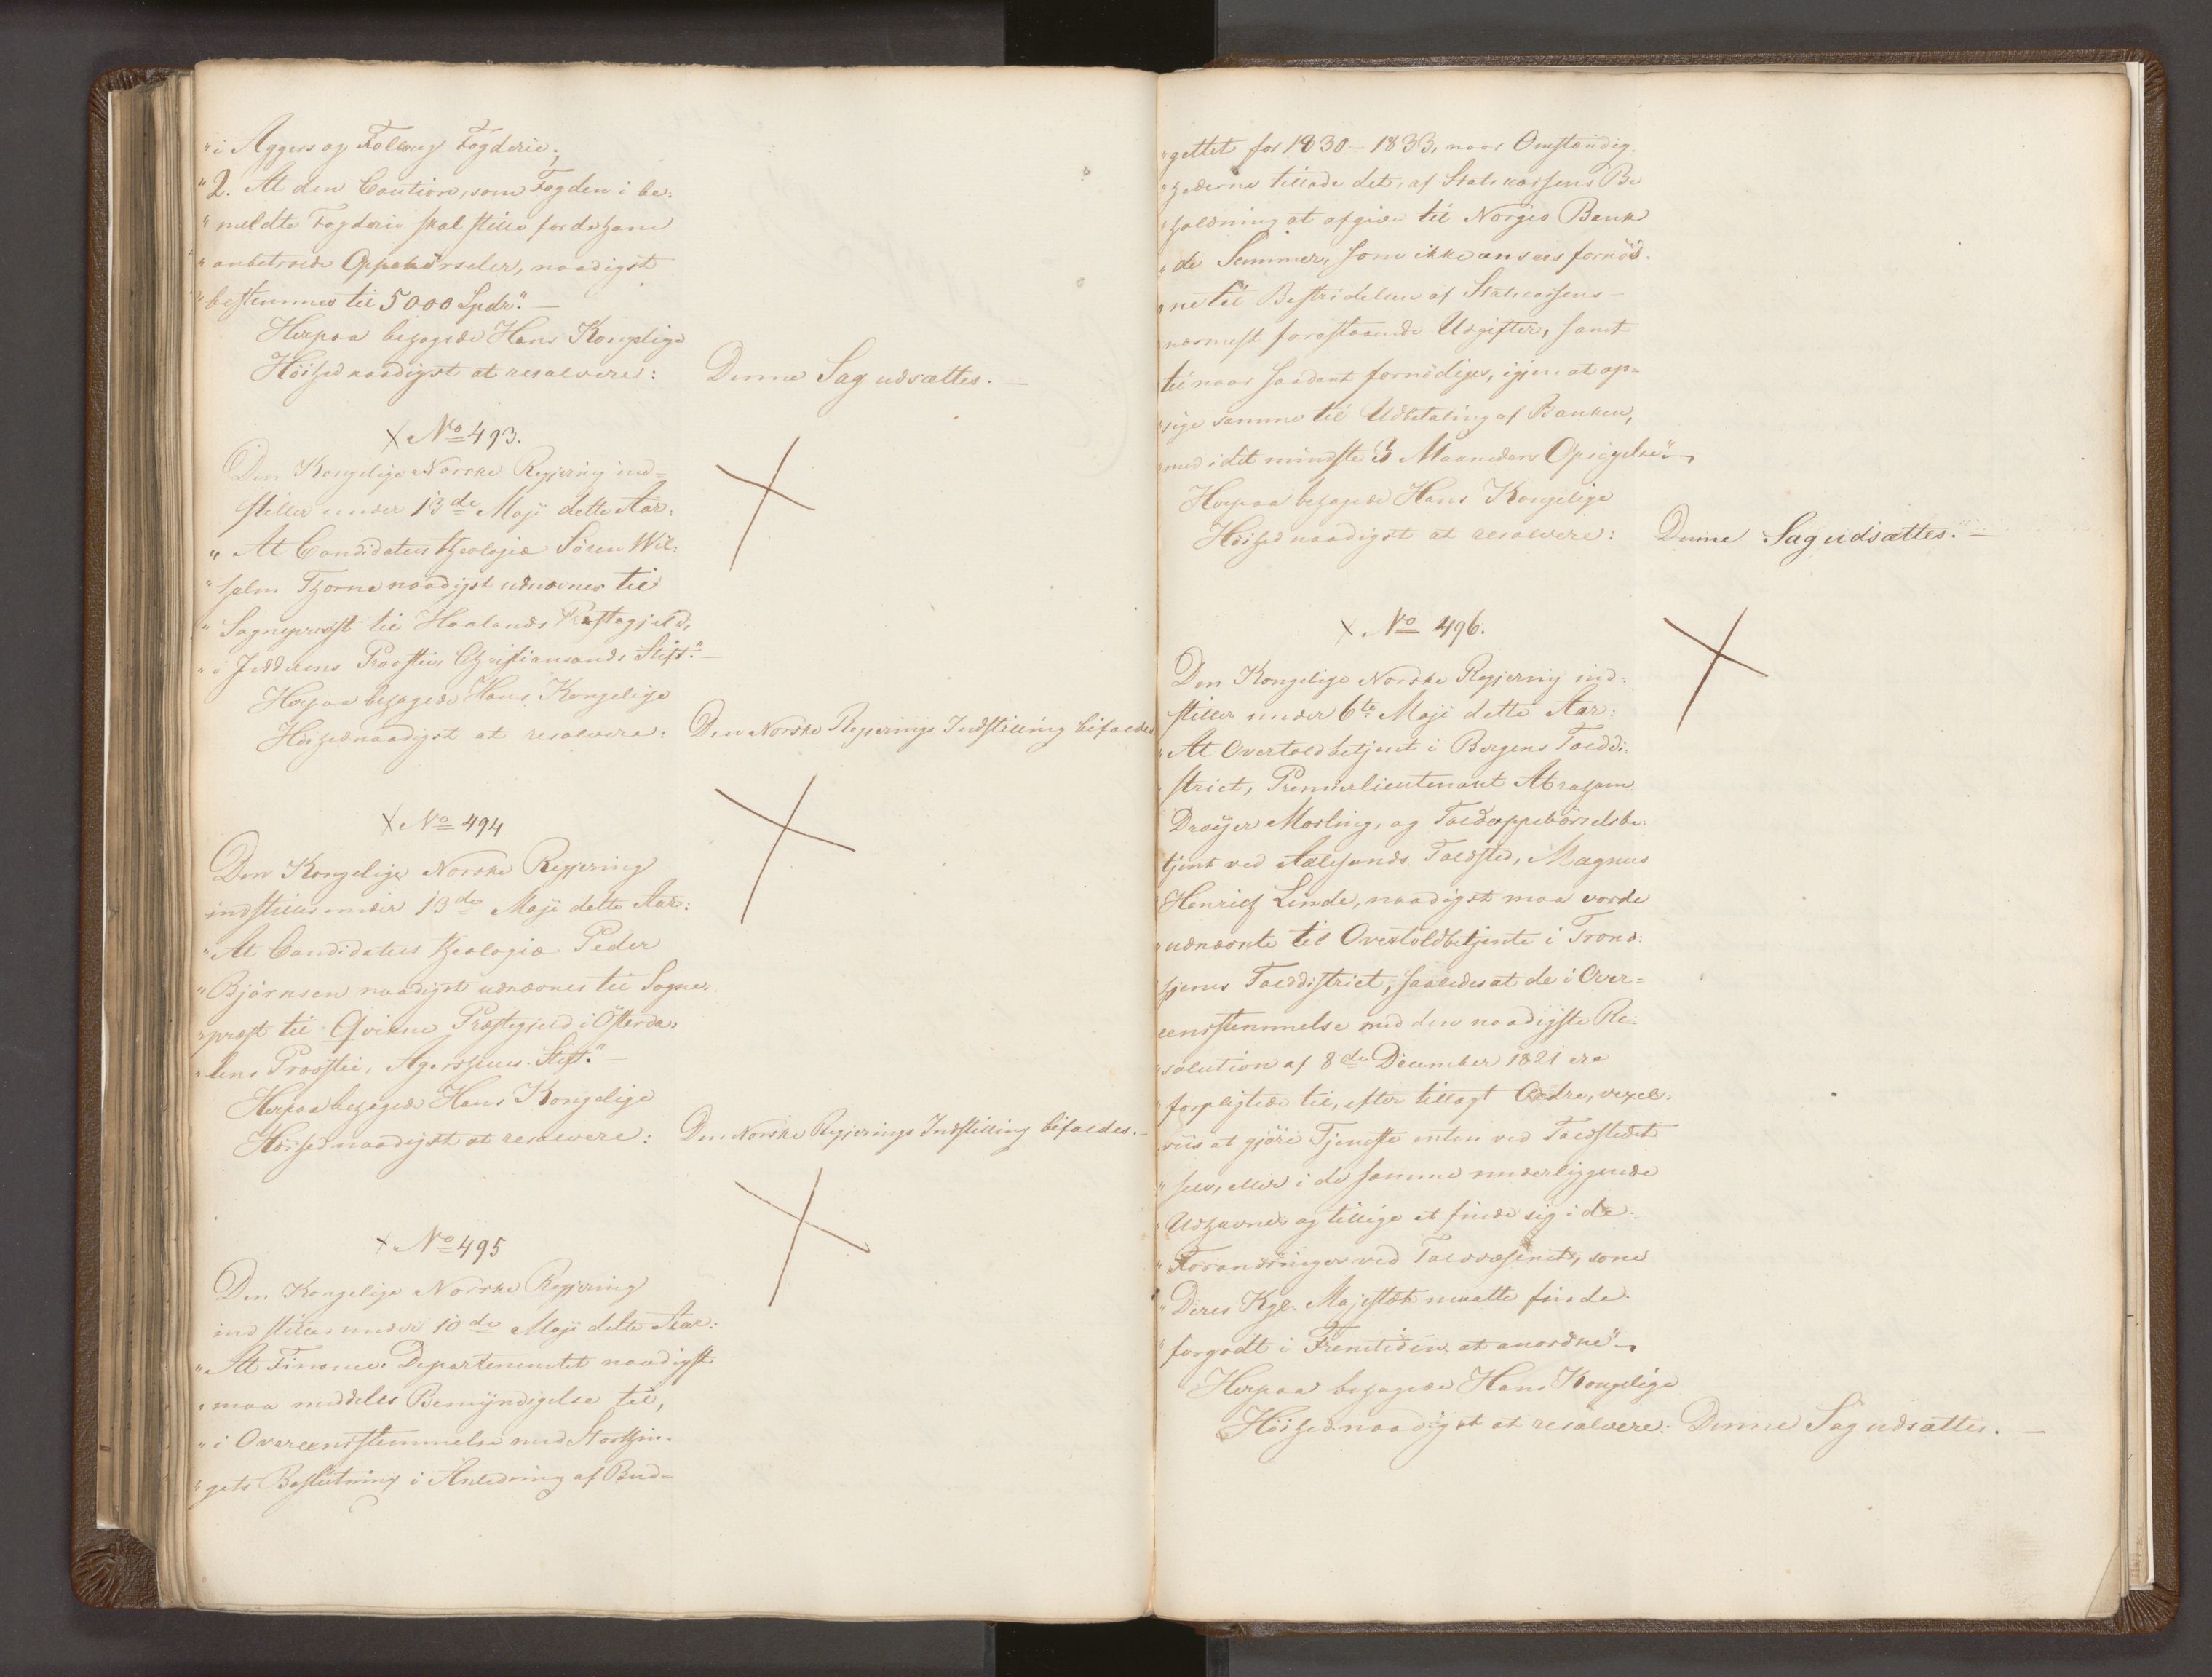 "i Aggers og Follaugs Fogderie;
"2. At den Caution, som Fogden i be-
"meldte Fogderie skal stille for de ham
"anbetroede Oppebørseler, naadigst
"bestemmes til 5000 Spdr". —
Herpaa behagede Hans Kongelige
Höihed naadigst at resolvere: Denne Sag udsættes. —
× No 493.
Den Kongelige Norske Regjering ind-
stiller under 13de Maji dette Aar:
"At Candidatus theologiæ Sören Wil-
"helm Thorne naadigst udnævnes til
"Sognepræst til Haalands Præstegjeld,
"i Jedderens Provstie, Christiansands Stift". —
Herpaa behagede Hans Kongelige
Höihed naadigst at resolvere: Den Norske Regjerings Indstilling bifaldes.
× No 494
Den Kongelige Norske Regjering
indstiller under 13de Maji dette Aar:
"At Candidatus theologiæ Peder
"Björnsen naadigst udnævnes til Sogne-
"præst til Qvikne Præstegjeld i Österda-
"lens Provstie, Agershuus Stift". —
Herpaa behagede Hans Kongelige
Höihed naadigst at resolvere: Den Norske Regjerings Indstilling bifaldes. —
× No 495
Den Kongelige Norske Regjering
indstiller under 10de Maji dette Aar:
"At Finance-Departementet naadigst
"maa meddeles Bemyndigelse til,
"i Overeensstemmelse med Storthin-
"gets Beslutning i Anledning af Bud-
"gettet for 1830–1833, naar Omstændig-
"hederne tillade det, af Statskassens Be
"holdning at afgive til Norges Bank
"de Summer, som ikke ansaaes fornöd-
"ne til Bestridelsen af Statskassens
"nærmest forestaaende Udgifter, samt
"til naar saadant fornödiges, igjen at op-
"sige samme til Udbetaling af Banken,
"med i det mindste 3 Maaneders Opsigelse". —
Herpaa behagede Hans Kongelige
Höihed naadigst at resolvere: Denne Sag udsættes. —
× No 496.
Den Kongelige Norske Regjering ind-
stiller under 6te Maji dette Aar:
"At Overtoldbetjent i Bergens Tolddi-
"strict, Premierlieutenant Abraham
"Dreyer Mosling, og Toldoppebörselsbe-
"tjent ved Aalesunds Toldsted, Magnus
"Henrich Linde, naadigst maa vorde
"udnævnte til Overtoldbetjente i Trond-
"hjems Tolddistrict, saaledes at de i Over-
"eensstemmelse med den naadigste Re-
"solution af 8de December 1821 ere
"forpligtede til, efter tillagt Ordre, vexel-
"viis at gjöre Tjeneste enten ved Toldstedet
"selv, eller i de samme underliggende
"Udhavne, og tillige at finde sig i de
"Forandringer ved Toldvæsenet, som
"Deres Kgl. Majestæt maatte finde
"forgodt i Fremtiden at anordne". —
Herpaa behagede Hans Kongelige
Höihed naadigst at resolvere: Denne Sag udsættes. —